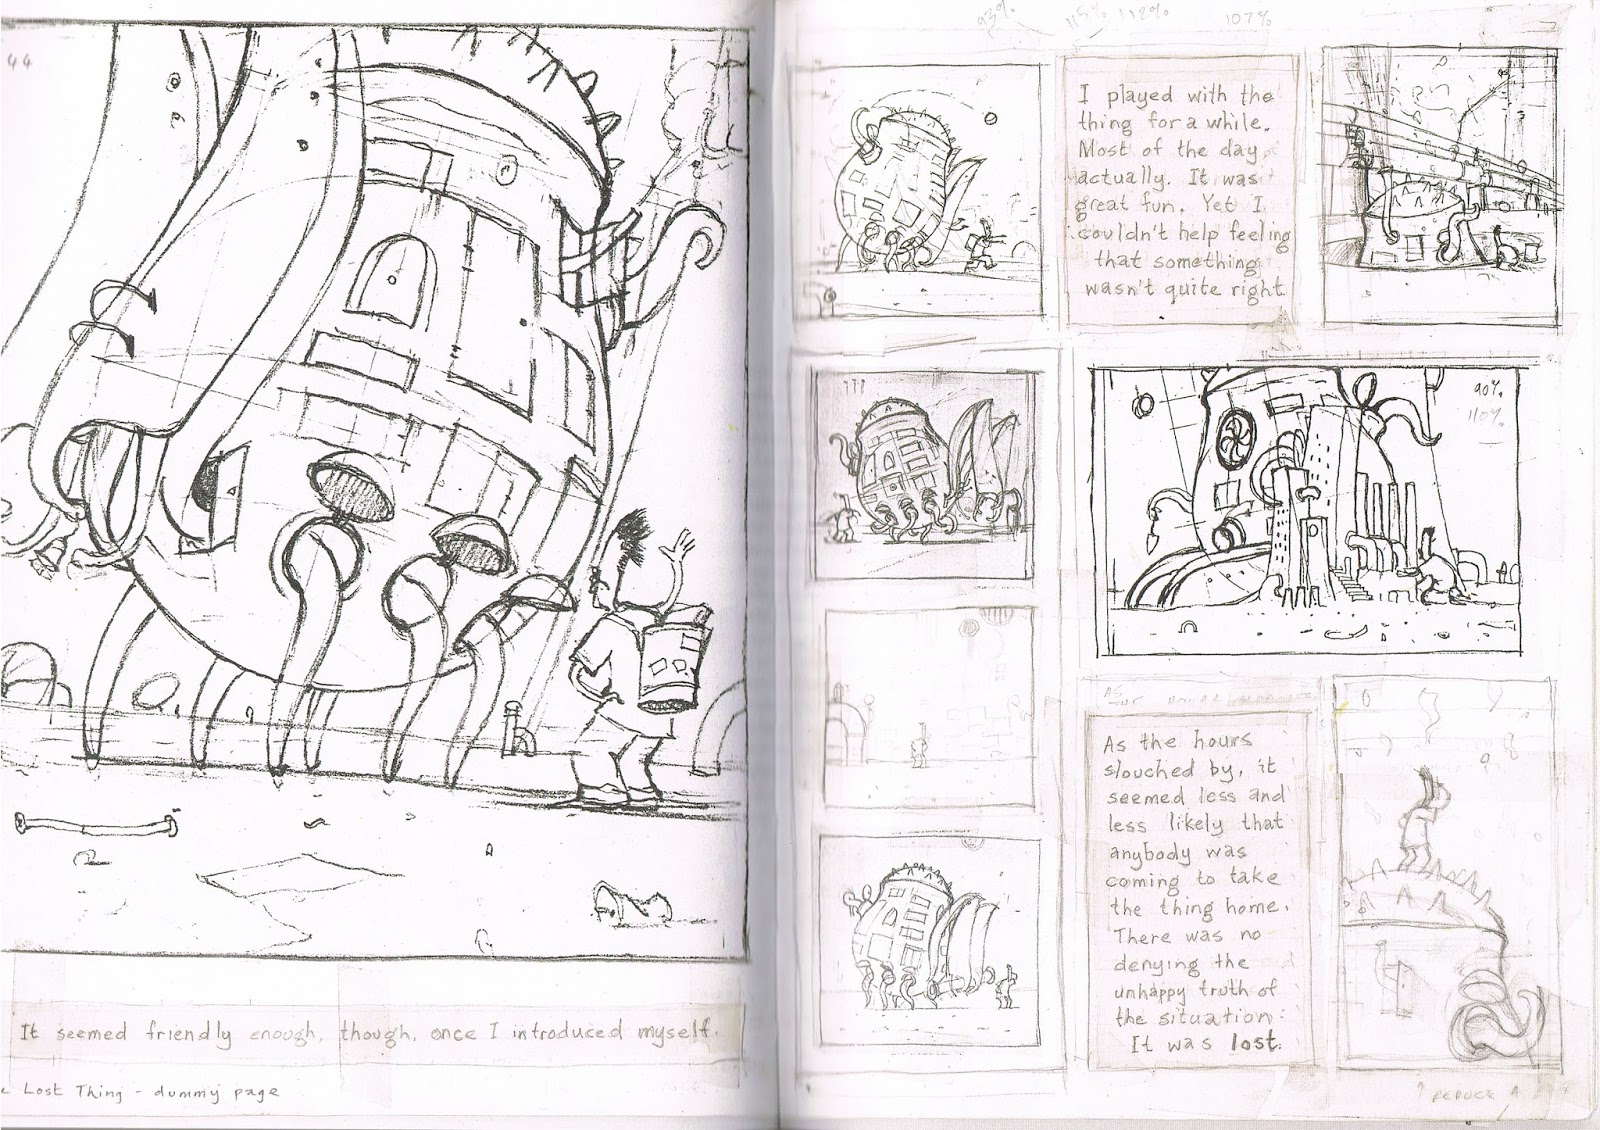 44
It seemed friendly enough, though, once I introduced myself.
e Lost Thing - dummy page
93%
115%
112%
107%
I played with the
thing for a while.
Most of the day
actually. It was
great fun. Yet I
couldn't help feeling
that something
wasn't quite right
90%
110%
As the hours
slouched by, it
seemed less and
less likely that
anybody was
coming to take
the thing home.
There was no
denying the
unhappy truth of
the situation.
It was lost.
REDUCE